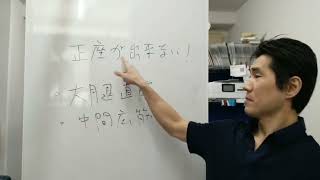 ・正座が出来ない!
・大腿直
・中間広筋